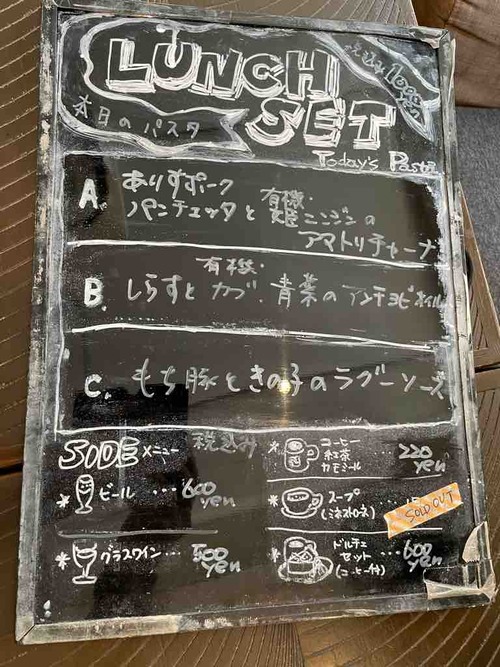 LUNCH
SET
税込み1600
本日のパスタ
Today's Pasta
A. ありすポーク
パンチェッタと 有機・姫ニンジンの
アマトリチャーナ
有機・
B. しらすと カブ・青菜の アンチョビオイル
C. もち豚ときの子のラグーソース
SIDE メニュー 税込み
*ビール ・・・600 yen
*グラスワイン・・・500 yen
*コーヒー
紅茶
カモミール
220 yen
*スープ
(ミネストローネ)
SOLD OUT
*ドルチェ
セット・・・600 yen
(コーヒー付)